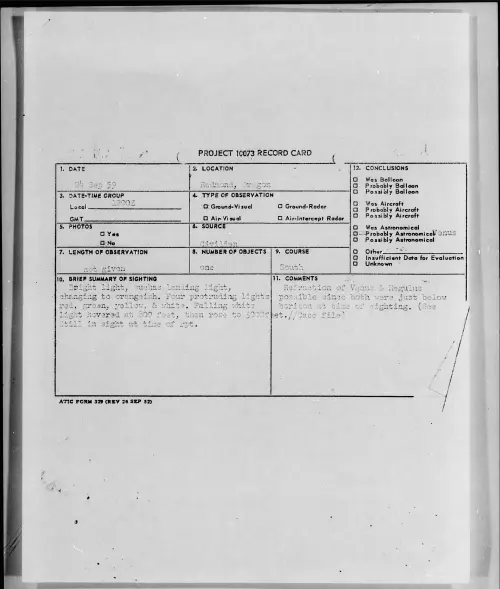 PROJECT 10073 RECORD CARD
1. DATE
24 Sep 59
2. LOCATION
Redmond, Oregon
12. CONCLUSIONS
□ Was Balloon
□ Probably Balloon
□ Possibly Balloon
□ Was Aircraft
□ Probably Aircraft
□ Possibly Aircraft
□ Was Astronomical
□ Probably Astronomical Venus
□ Possibly Astronomical
□ Other
□ Insufficient Data for Evaluation
□ Unknown
3. DATE-TIME GROUP
Local
GMT
4. TYPE OF OBSERVATION
□ Ground-Visual □ Ground-Radar
□ Air-Visual □ Air-Intercept Radar
5. PHOTOS
□ Yes
□ No
6. SOURCE
civilian
7. LENGTH OF OBSERVATION
not given
8. NUMBER OF OBJECTS
one
9. COURSE
South
10. BRIEF SUMMARY OF SIGHTING
Bright light, landing light,
changing to orangeish. Four protruding lights
red, green, yellow, & white. Falling white
light hovered at 200 feet, then rose to feet.
Still in sight at time of rpt.
11. COMMENTS
Refraction of Venus & Regulus
possible since both were just below
horizon at time of sighting. (See
Case file)
ATIC FORM 329 (REV 26 SEP 52)